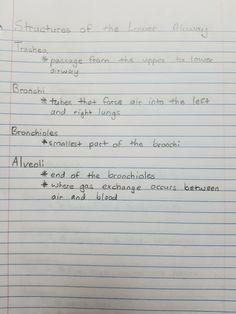 Structures of the Lower Airway
Trachea
* passage from the upper to lower
airway
Bronchi
* tubes that force air into the left
and right lungs
Bronchioles
* smallest part of the bronchi
Alveoli
* end of the bronchioles
* where gas exchange occurs between
air and blood